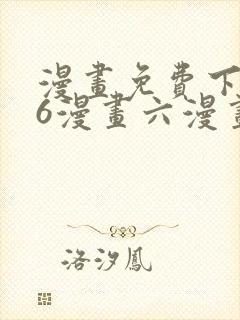 漫畫免費下
6漫畫六漫畫
洛汐鳳